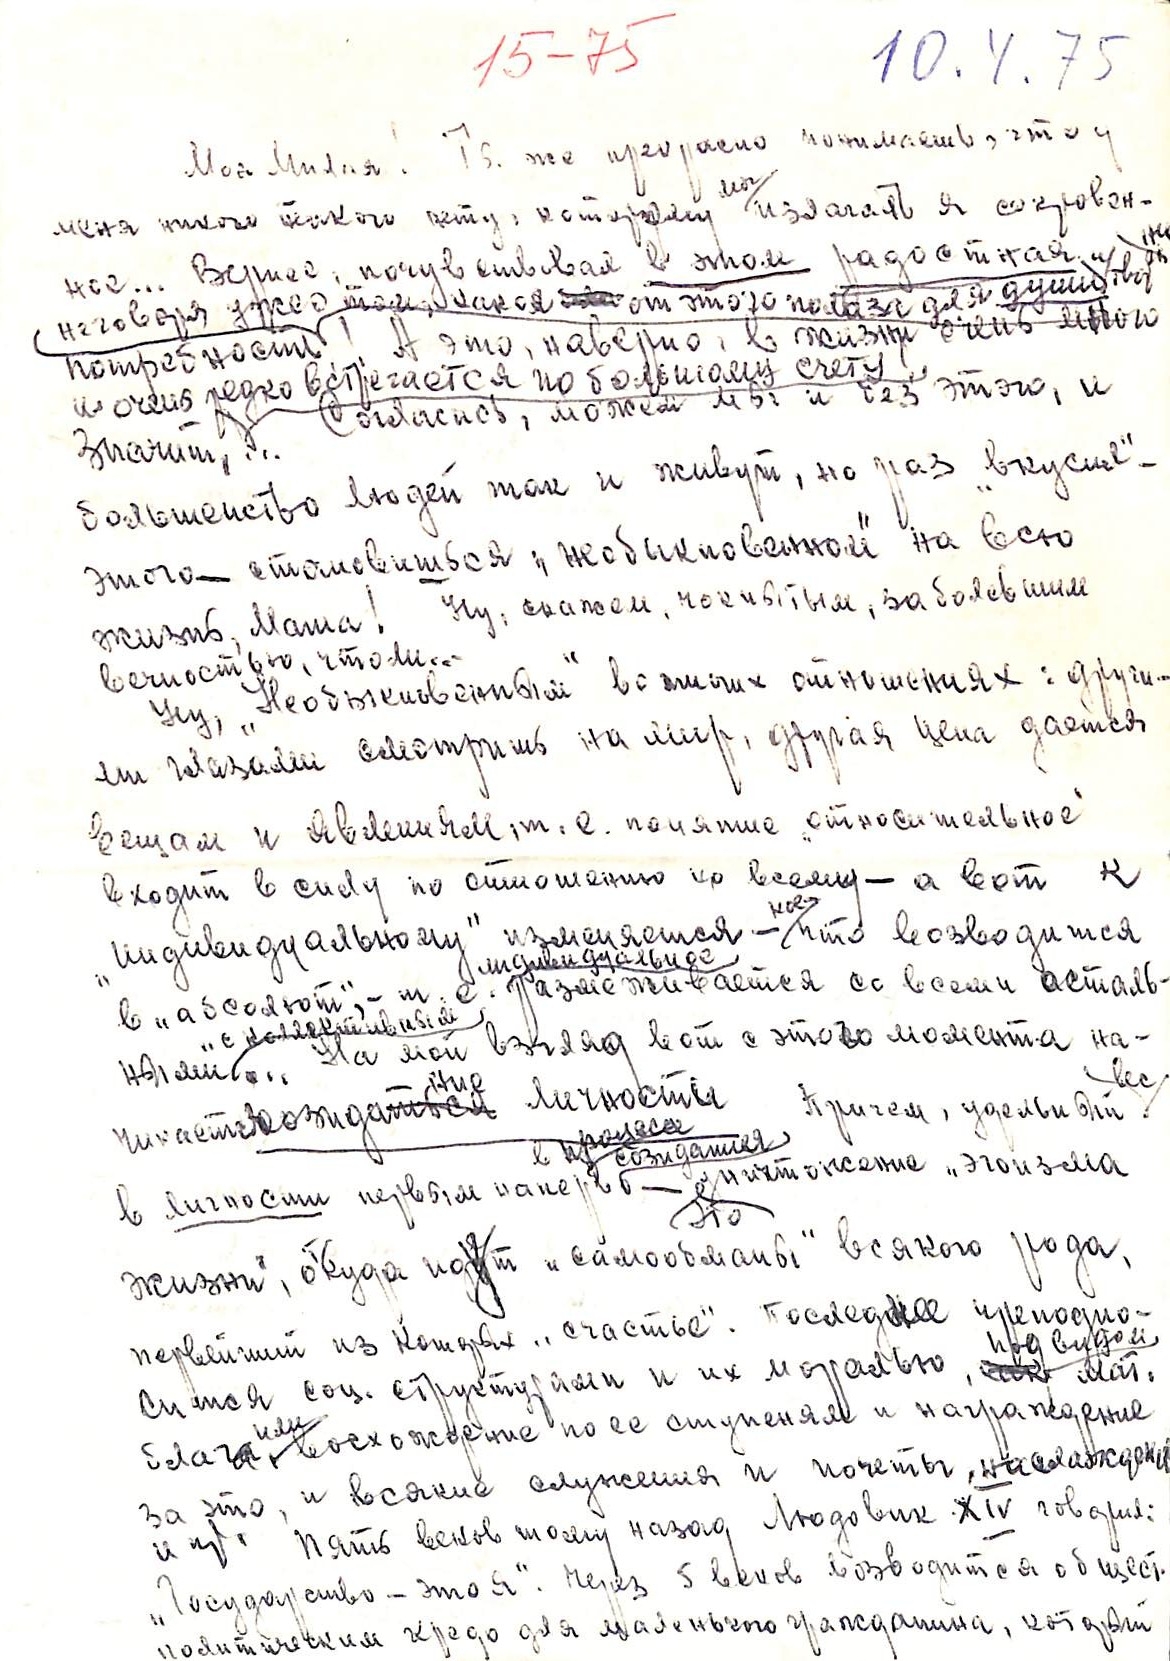 15-75
10.4.75
Моя Милая! Ты же прекрасно понимаешь, что у
меня никого такого нету, которому мог излагать я сокровен-
ное... Вернее, почувствовал в этом радостная и
не говоря уже о том, какая от этого польза для души
потребность! А это, наверно, в жизни очень много
и очень редко встречается по большому счету.
Значит,... Согласись, можем мы и без этого, и
большенство людей так и живут, но раз „вкусил" -
этого — становишься „необыкновенном" на всю
жизнь, Маша! Ну, скажем, чокнутым, заболевшим
вечностью, чтоли...
Ну, „Необыкновенным" во многих отношениях: други-
ми глазами смотришь на мир, другая цена дается
вещам и явлениям, т.е. понятие „относительное"
входит в силу по отношению ко всему — а вот к
„индивидуальному" изменяется — кое-что возводится
в „абсолют", - т.е. индивидуальное размеживается со всеми осталь-
ными" с коллективным... На мой взгляд вот с этого момента на-
чинается созидание личности Причем, удельный вес
в личности первым наперво в процессе созидания — это уничтожение „эгоизма
жизни", откуда идут „самообманы" всякого рода,
первейший из которых „счастье". Последнее преподно-
сится соц. структурами и их моралью, под видом мат.
блага, или восхождение по ее ступеням и награждение
за это, и всякие служения и почеты, наслаждения
и пр. Пять веков тому назад Людовик XIV говорил:
„Государство — это я". Через 5 веков возводится общест.
политическим кредо для маленького гражданина, который